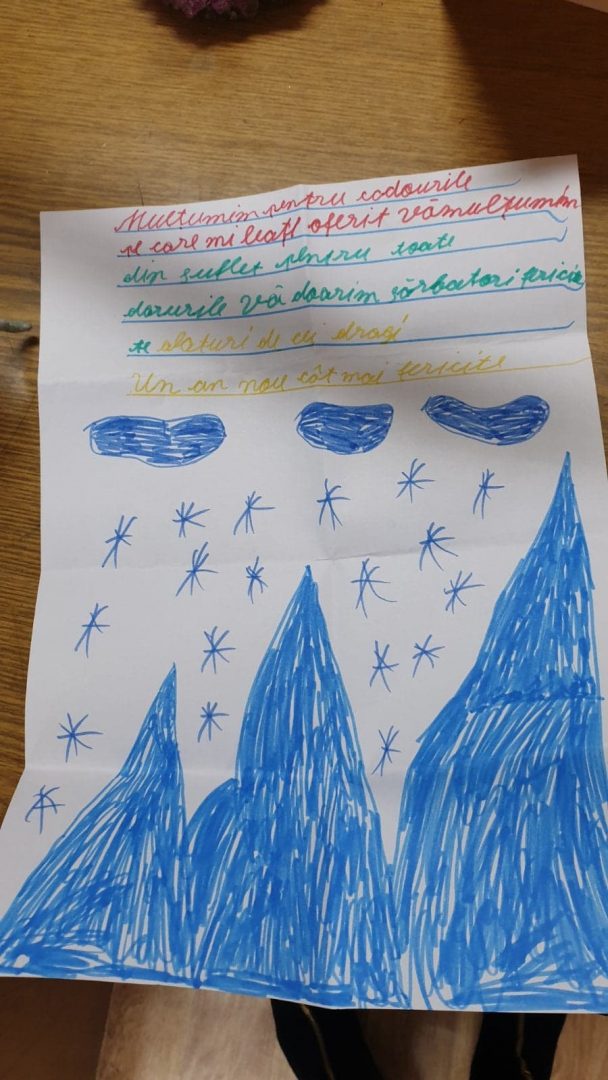 Multumim pentru cadourile
pe care mi leați oferit vămulțumim
din suflet pentru toate
darurile Vă doarim sărbatori fericie
te alaturi de cei dragi
Un an nou cât mai fericite